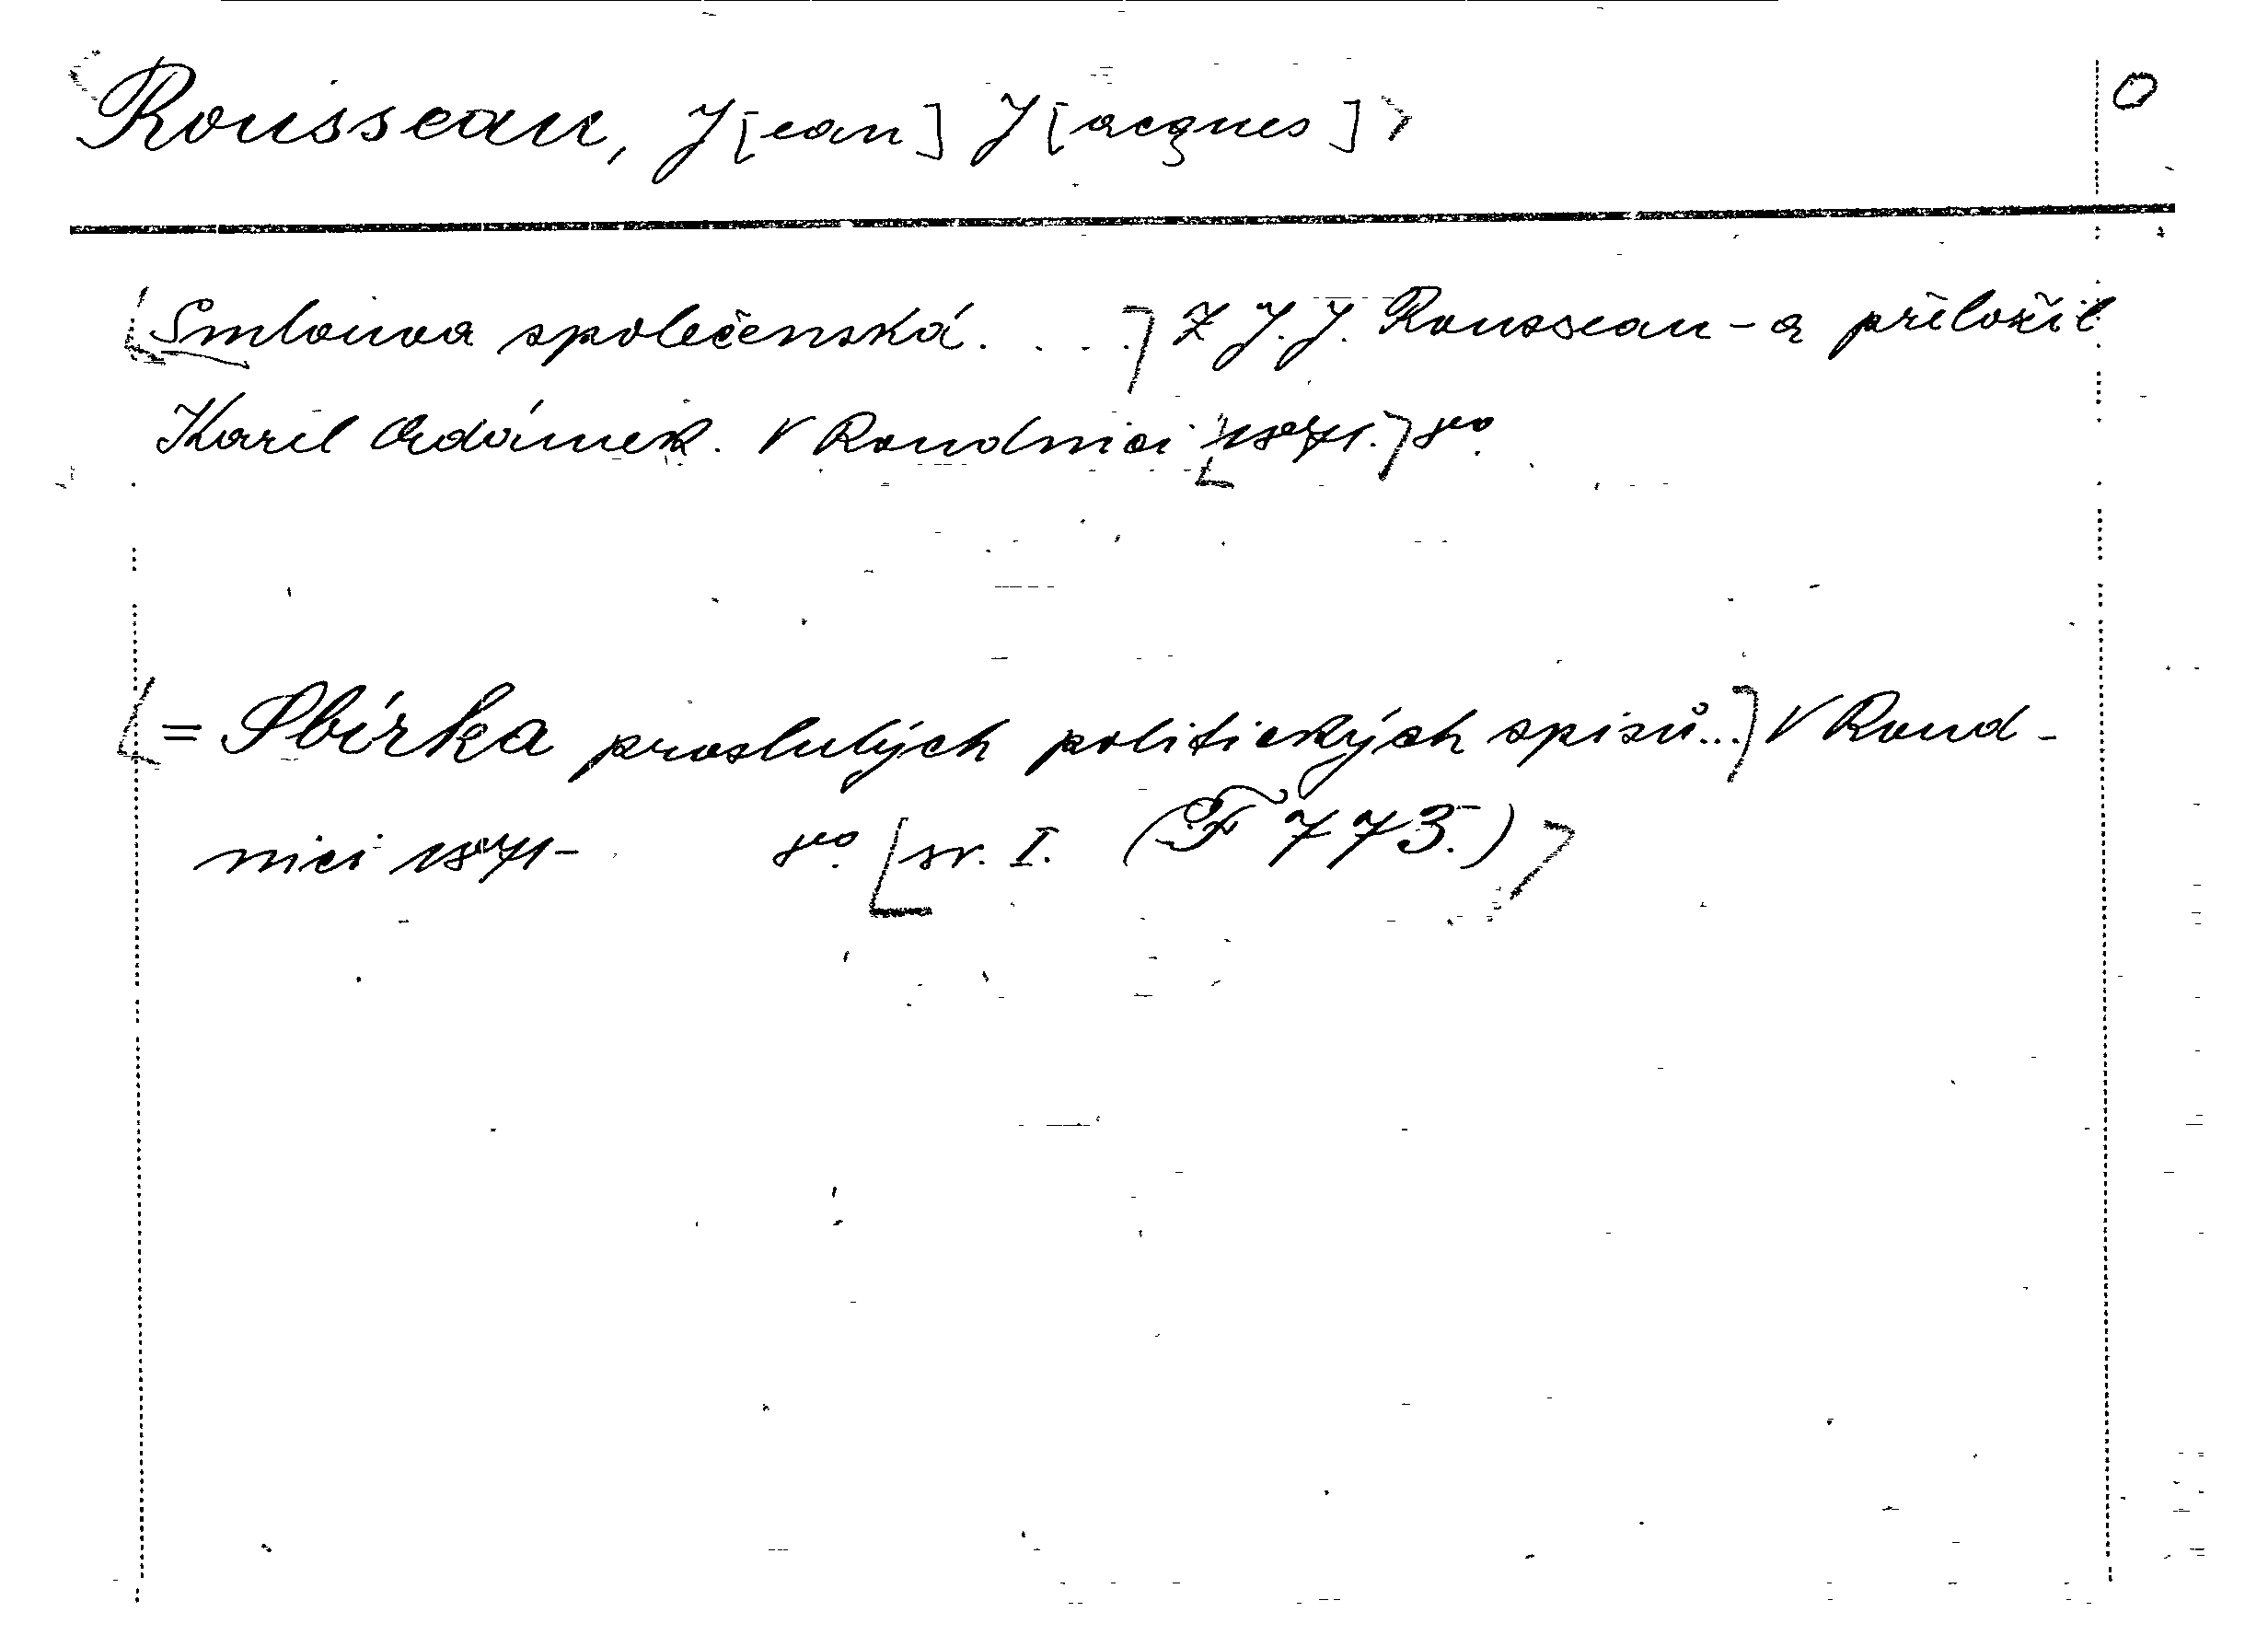 <Rousseau, J[ean] J[acques]> O
[Smlouva společenská. . . .] Z J. J. Rousseau-a přeložil
Karel Adámek. V Roudnici [1871.] 8vo.
[= Sbírka proslulých politických spisů...] V Roud-
nici 1871- 8vo. [sv. I. (F 773.)]